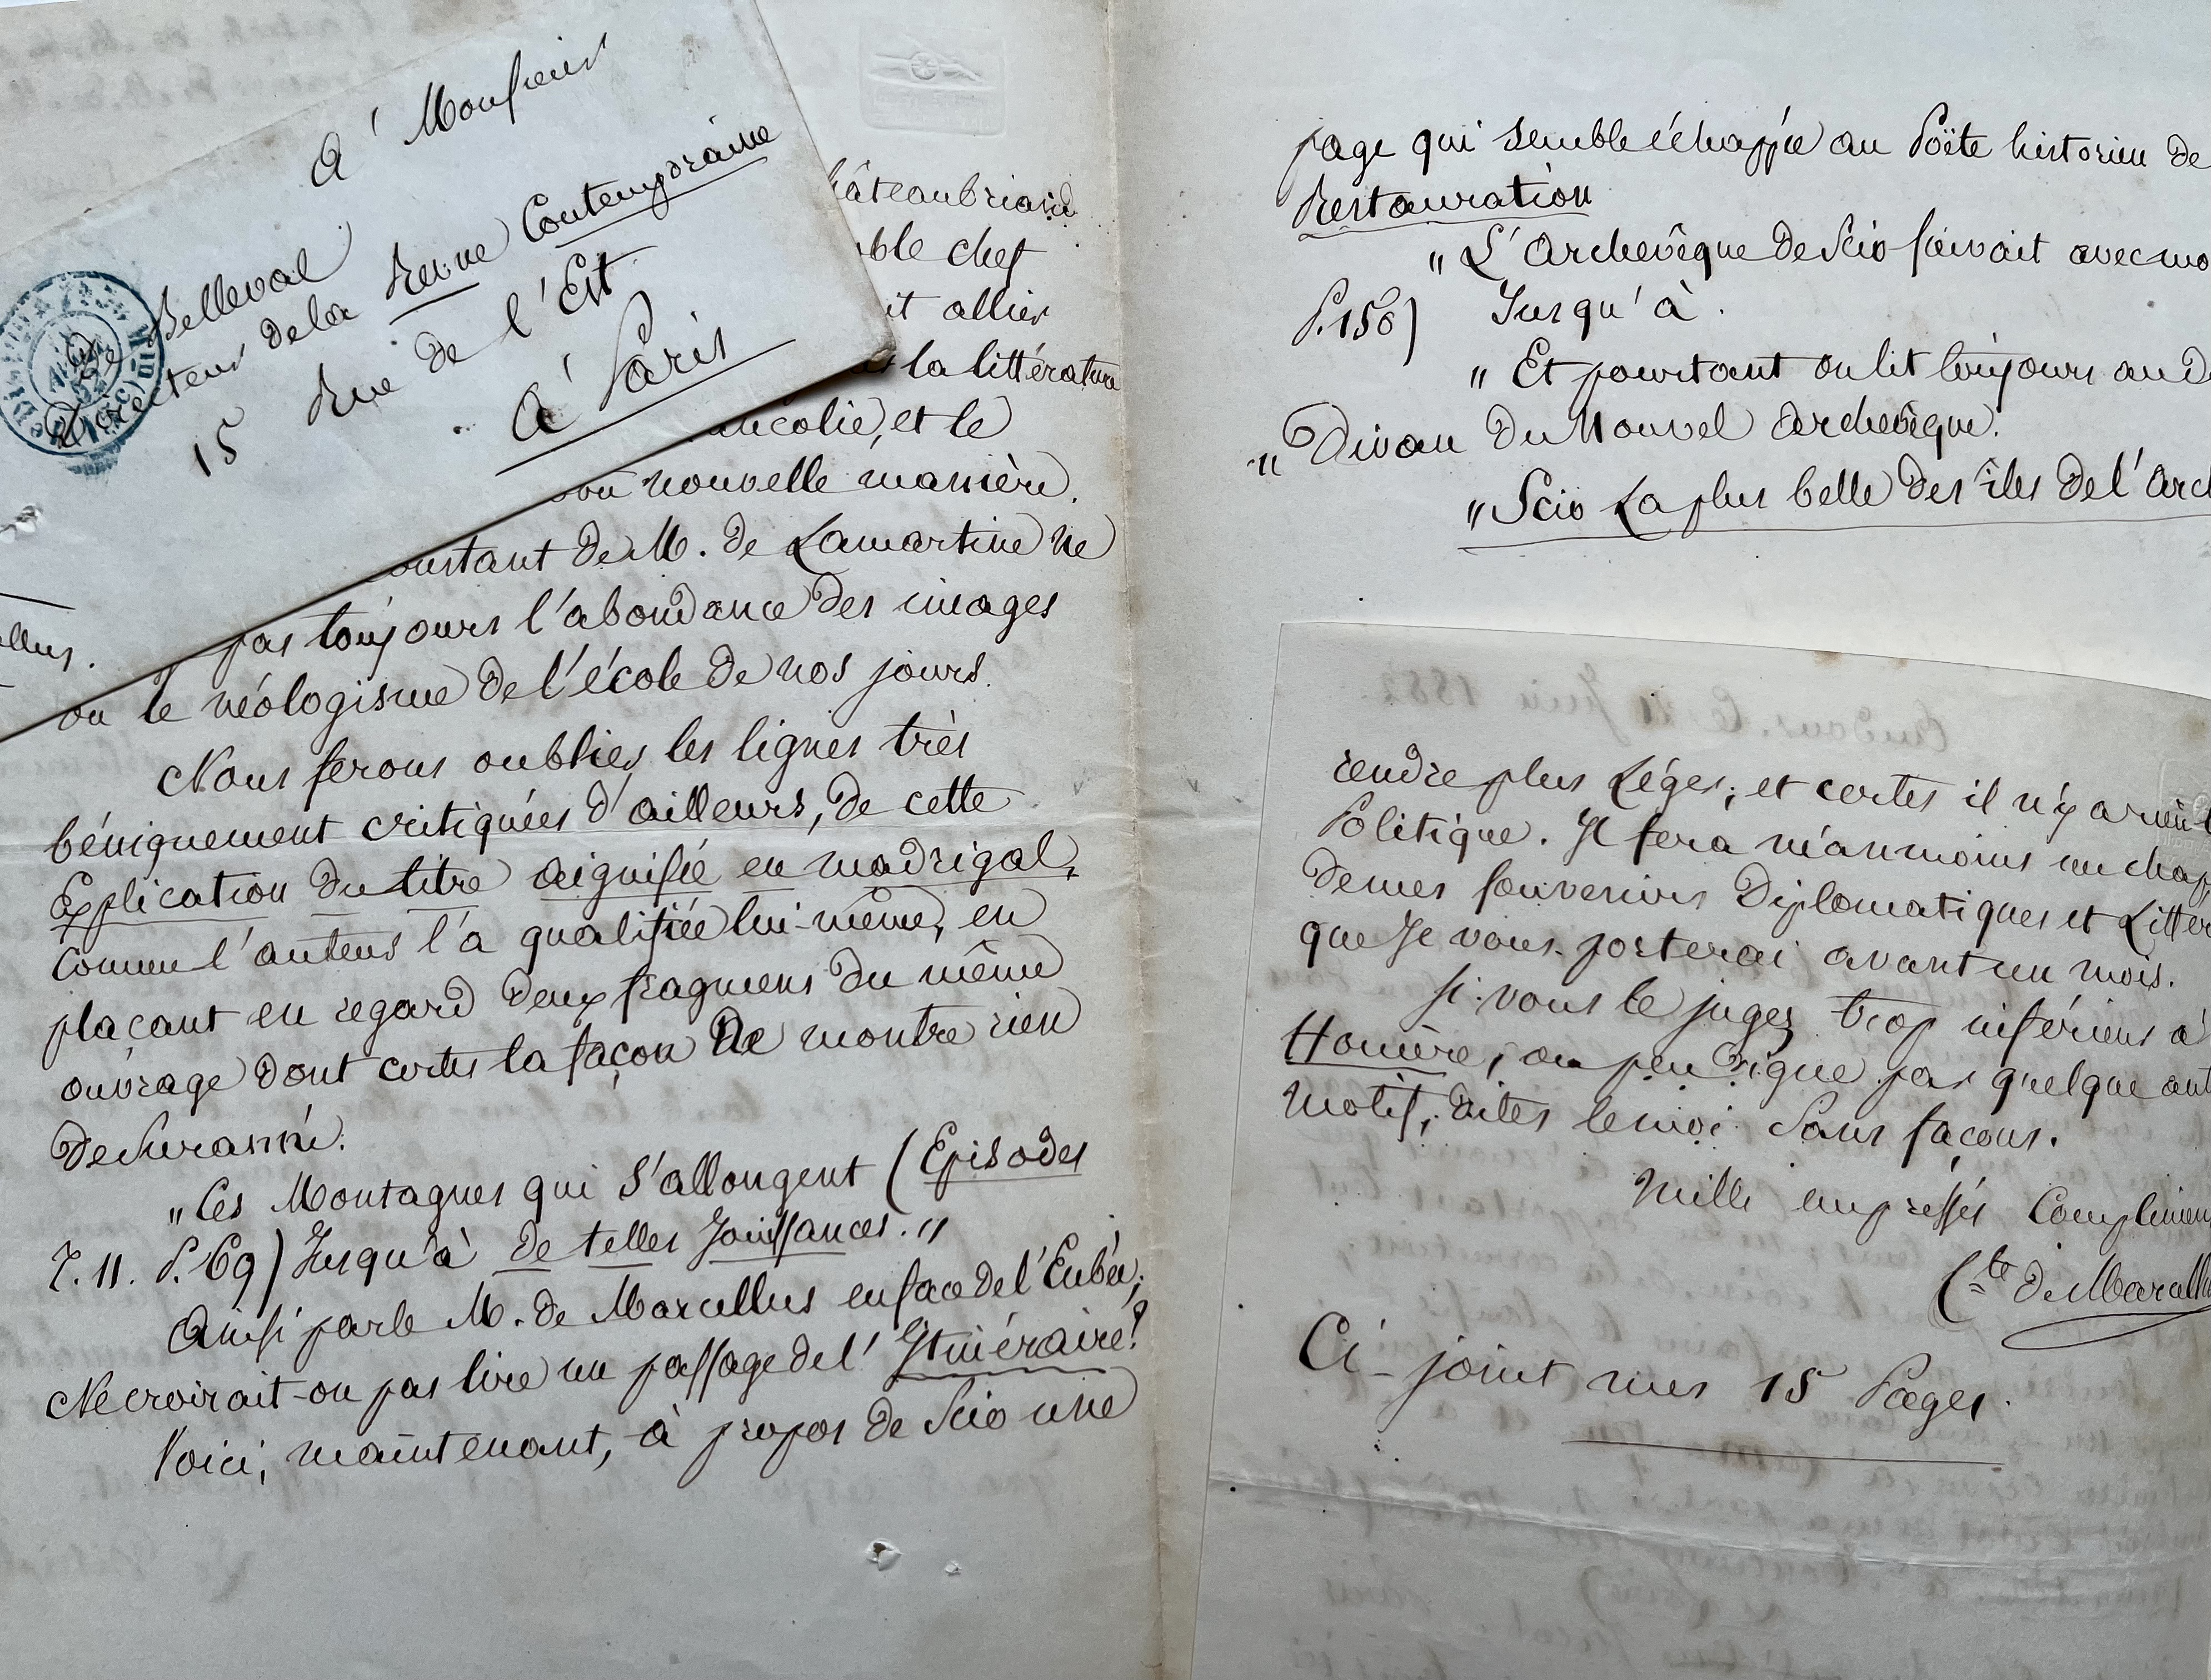 A Monsieur
De Belleval
Directeur de la Revue Contemporaine
15 Rue de l'Est
A Paris
hâteaubriand
ble chef
it allier
la littérature
ancolie, et le
son nouvelle manière.
constant de M. de Lamartine ne
pas toujours l'abondance des images
ou le néologisme de l'école de nos jours.
Nous ferons oublier les lignes très
bénignement critiquées d'ailleurs, de cette
Explication du titre aiguisée en madrigal,
comme l'auteur l'a qualifiée lui-même, en
plaçant en regard deux fragmens du même
ouvrage dont certes la façon ne montre rien
de suranné.
"Ces Montagnes qui s'allongent (Episodes
T. 11. P. 69) Jusqu'à de telles Jouissances."
Ainsi parle M. de Marcellus en face de l'Eubée;
Ne croirait-on pas lire un passage de l'Itinéraire?
Voici, maintenant, à propos de Scio une
ellus.
page qui semble échappée au Poëte historien de
Restauration
"L'Archevêque de Scio suivait avec mo
P. 156) Jusqu'à.
"Et pourtant on lit toujours au D
"Divan du Nouvel Archevêque.
"Scio La plus belle des îles de l'Arch
rendre plus Léger; et certes il n'y a rien
Politique. Il sera néanmoins un chap
de mes souvenirs Diplomatiques et Littér
que Je vous porterai avant un mois.
Si vous le jugez trop inférieur à
Homère, ou peu digne par quelque aut
motif, dites le moi sans façons.
Mille empressés Complimen
Cte de Marcellu
Ci-joint mes 15 Pages.